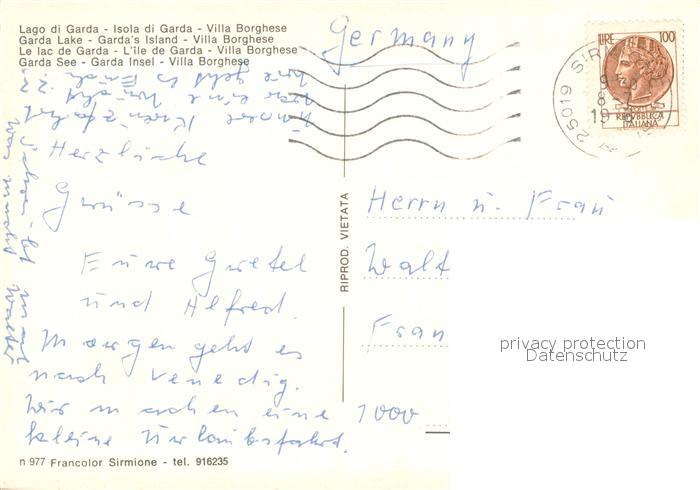 Lago di Garda - Isola di Garda - Villa Borghese
Garda Lake - Garda's Island - Villa Borghese
Le lac de Garda - L'île de Garda - Villa Borghese
Garda See - Garda Insel - Villa Borghese
Germany
LIRE 100
REPVBBLICA
ITALIANA
25019 SIRM
Herzliche
Grüsse
Eure Gretel
und Alfred.
Morgen geht es
nach Venedig.
Wir machen eine
kleine Urlaubsfahrt.
geht es Ende
eine
RIPROD. VIETATA
Herrn u. Frau
Walt
Fran
1000
privacy protection
Datenschutz
n 977 Francolor Sirmione - tel. 916235